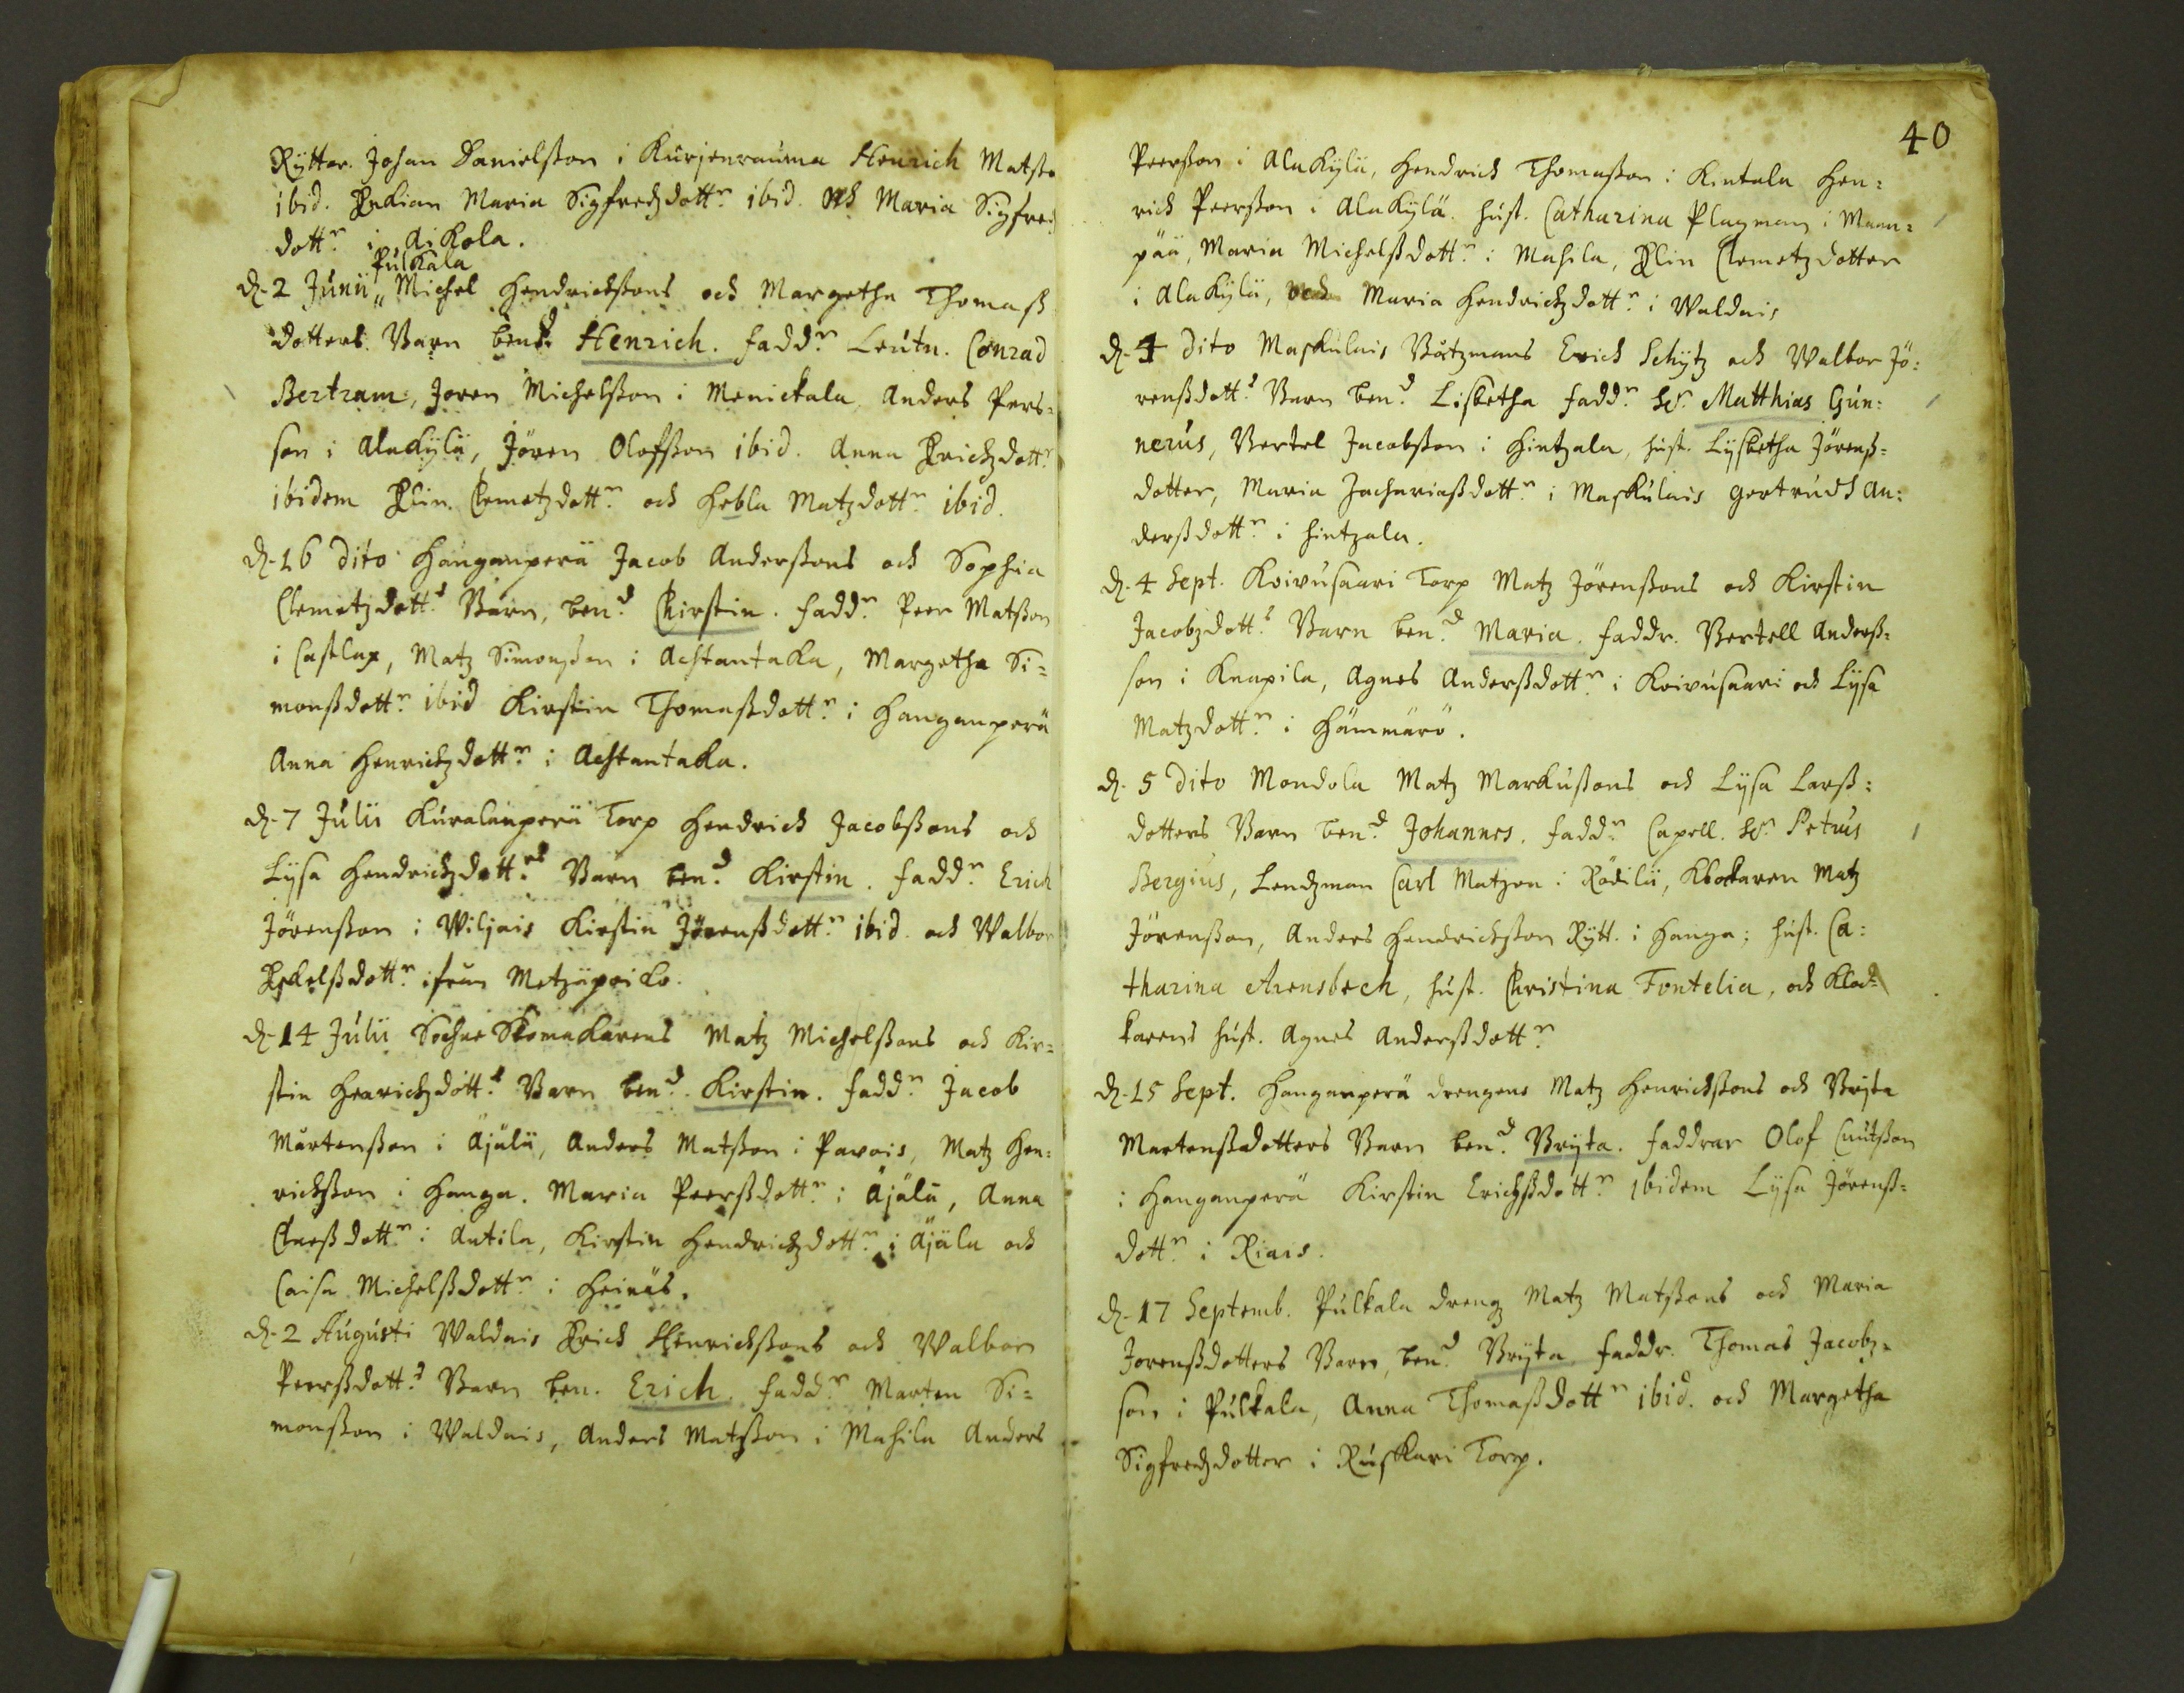 Rÿttar. Johan Danielsson i Kurjenrauma Henrich Matss
ibid. Pukian Maria Sigfredzdottr ibid. och Maria Sigfred
dottr i Aikola.
Pulkala
d. 2 Junii Michel Hendrickssons och Margetha Thomass
dotters Barn bend Henrich. faddr Leutn. Conrad
Bertram, Joren Michelsson i Menickala Anders Pers=
son i Alakylä, Jören Olofsson ibid. Anna Erichzdottr
ibidem Elin Clemetzdottr och Hebla Matzdottr ibid.
d. 16 dito Hanganperä Jacob Anderssons och Sophia
Clemetzdotts Barn, bend Chirstin. faddr Peer Matsson
i Castlax, Matz Simonsson i Achtantaka, Margetha Si=
monssdottr ibid Kirstin Thomassdottr i Hanganperä
Anna Henrichzdottr i Achtantaka.
d. 7 Julii Kuralanperä Torp Hendrick Jacobssons och
Lÿsa Hendrichzdottrs Barn bend Kirstin. faddr Erich
Jörensson i Wiljais Kirstin Jörenssdottr ibid. och Walbor
Eskelssdottr ifrån Metzäpeiko.
d. 14 Julii Sochne Skomakarens Matz Michelssons och Kir=
stin Henrichzdotts Barn bend Kirstin. faddr Jacob
Mårtensson i Äjälä, Anders Matsson i Pavais, Matz Hen=
richsson i Hanga. Maria Peerssdottr i Äjälä, Anna
Claessdottr i Antila, Kirstin Hendrichzdottr i Äjäla och
Caisa Michelssdottr i Heinäs.
d. 2 Augusti Waldais Erick Henrickssons och Walbor
Peerssdotts Barn ben. Erich. faddr Marten Si=
monsson i Waldais, Anders Matsson i Mahila Anders
40
Peersson i Alakÿlä, Hendrick Thomasson i Kintala Hen=
rick Peersson i Alakÿlä. Hust. Catharina Plagman i Maan=
pää, Maria Michelssdottr i Mahila, Elin Clemetzdotter
i Alakÿlä, och Maria Hendrichzdottr i Waldais
d. 4 dito Maskulais Båtzmans Erich Schÿtz och Walbor Jö=
renssdotts Barn bend Lisketha faddr Hr Matthias Gun=
nerus, Bertel Jacobsson i Hintzala, hust. Lÿsketha Jörenss=
dotter, Maria Zachariassdottr i Maskulais Gertrudh An=
derssdottr i Hintzala.
d. 4 Sept. Koivusaari Torp Matz Jörenssons och Kirstin
Jacobzdotts Barn bend Maria. faddr. Bertell Anders=
son i Knapila, Agnes Anderssdottr i Koivusaari och Lÿsa
Matzdottr i Hämmärö.
d. 5 dito Mondola Matz Markussons och Lÿsa Larss=
dotters Barn bend Johannes. faddr Capell. Hr Petrus
Bergius, Lendzman Carl Matzon i Rödilä, Klockaren Matz
Jörensson, Anders Hendricksson Rÿtt. i Hanga; hust. Ca=
tharina Arensbech, hust. Christina Fontelia, och Kloc=
karens hust. Agnes Anderssdottr
d. 15 Sept. Hanganperä drengens Matz Henrickssons och Brÿta
Martenssdotters Barn bend Brÿta. faddrar Olof Cnutsson
i Hanganperä Kirstin Erichssdottr ibidem Lÿsa Jörenss=
dottr i Riais.
d. 17 Septemb. Pulkala dreng Matz Matssons och Maria
Jorenssdotters Barn, bend Brÿta faddr. Thomas Jacobz=
son i Pulkala, Anna Thomassdottr ibid. och Margetha
Sigfredzdotter i Ruskari Torp.